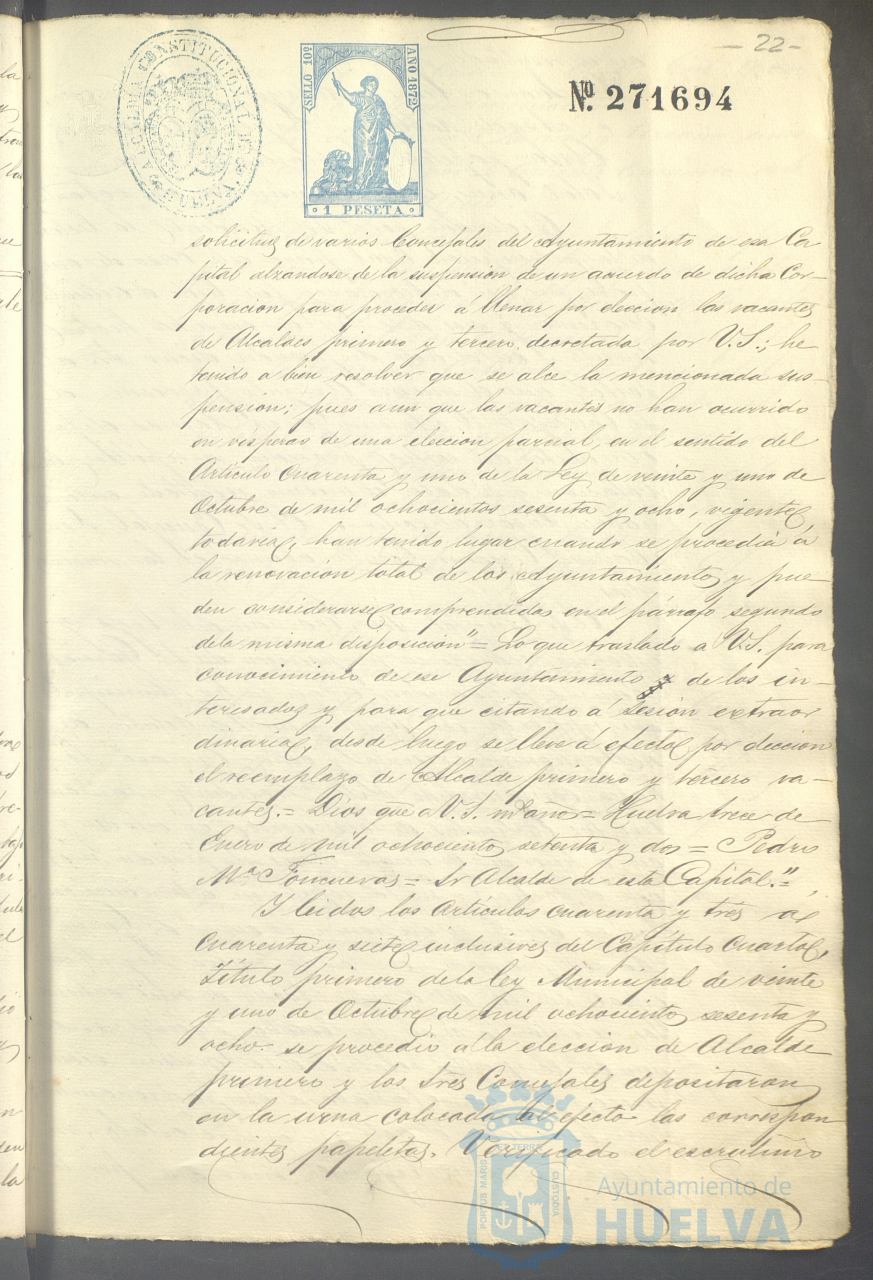 - 22 -
ALCALDIA CONSTITUCIONAL DE HUELVA
SELLO 10º AÑO 1872
1 PESETA
Nº 271694
solicitud de varios Concejales del Ayuntamiento de esa Ca
pital alzandose de la suspension de un acuerdo de dicha Cor-
poracion para proceder á llenar por eleccion las vacantes
de Alcaldes primero y tercero, decretada por V.S.; he
tenido a bien resolver que se alce la mencionada sus-
pension; pues aun que las vacantes no han ocurrido
en visperas de una eleccion parcial, en el sentido del
Artículo cuarenta y uno de la Ley de veinte y uno de
Octubre de mil ochocientos sesenta y ocho, vigente
todavia, han tenido lugar cuando se procedia á
la renovacion total de los Ayuntamientos y pue-
den considerarse comprendidas en el párrafo segundo
de la misma disposicion" = Lo que traslado a V.S. para
conocimiento de ese Ayuntamiento y de los in-
teresados y para que citando á Sesion extraor
dinaria, desde luego se lleve á efecto por eleccion
el reemplazo de Alcalde primero y tercero va-
cantes. = Dios gue a V.S. ms añs = Huelva trece de
Enero de mil ochocientos setenta y dos = Pedro
Mª Foncuevas = Sr Alcalde de esta Capital." =
Y leidos los artículos cuarenta y tres al
cuarenta y siete inclusives del Capítulo cuarto,
título primero de la ley Municipal de veinte
y uno de Octubre de mil ochocientos sesenta y
ocho. se procedió a la eleccion de Alcalde
primero y los tres Concejales depositaron
en la urna colocada al efecto las correspon
dientes papeletas. Verificado el escrutinio
PORTUS MARIS ET TERRE CUSTODIA
Ayuntamiento de
HUELVA